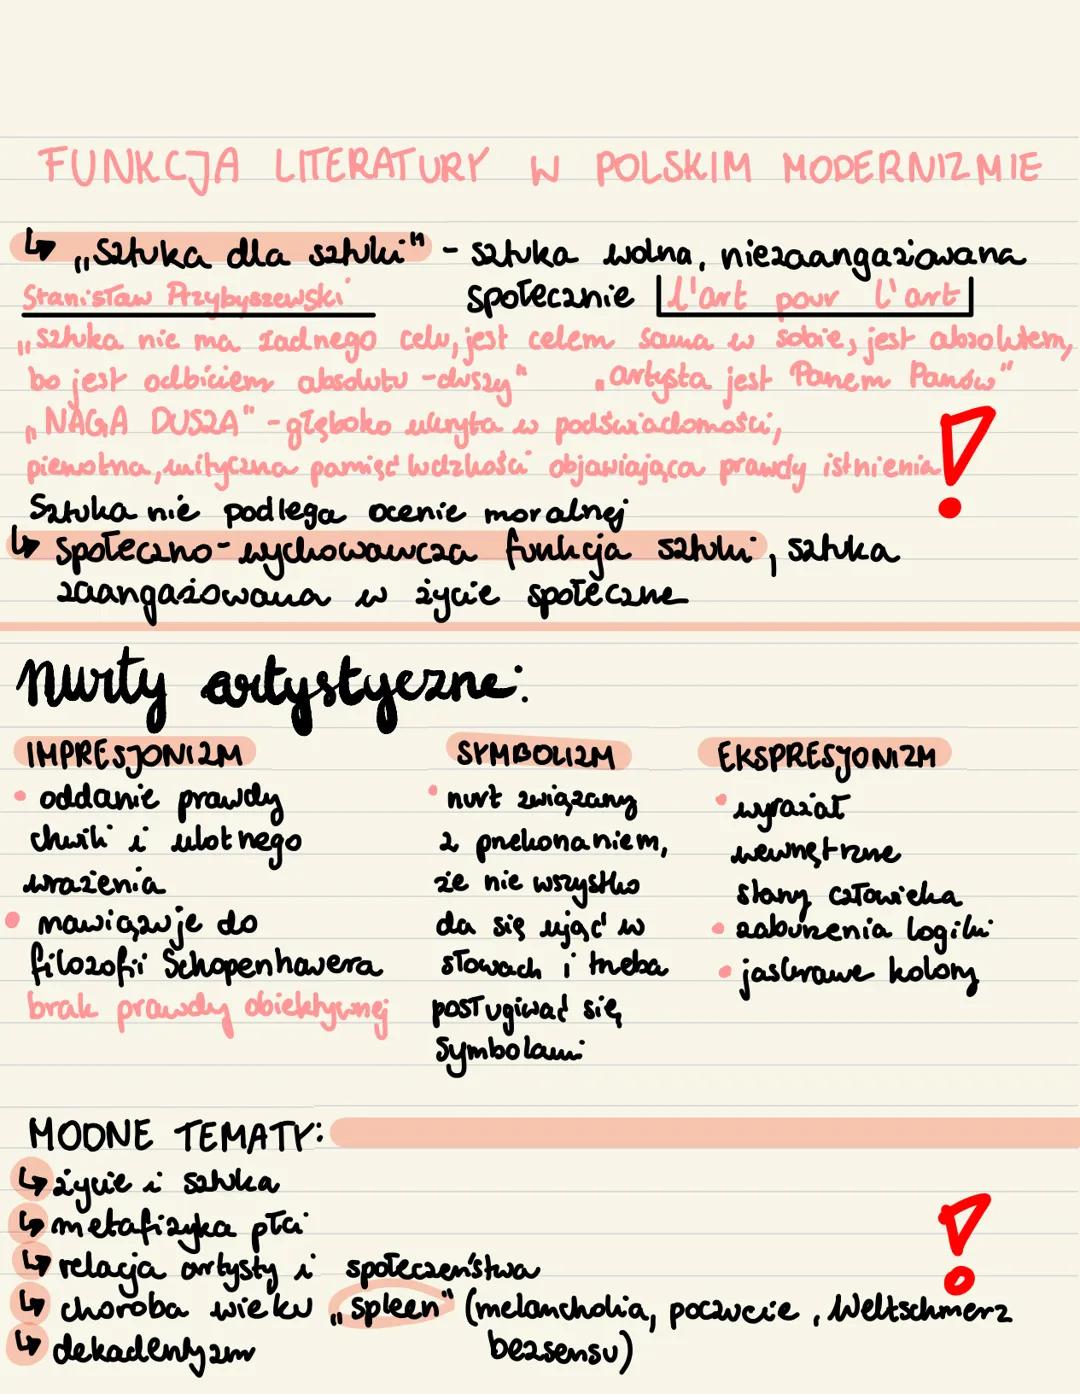 FUNKCJA LITERATURY W POLSKIM MODERNIZMIE
↳ „Sztuka dla sztuki" - sztuka wolna, niezaangażowana
Stanisław Przybyszewski społecznie l'art pour l'art
„sztuka nie ma żadnego celu, jest celem sama w sobie, jest absolutem,
bo jest odbiciem absolutu - duszy" „artysta jest Panem Panów"
„NAGA DUSZA" - głęboko ukryta w podświadomości,
pierwotna, mityczna pamięć ludzkości objawiająca prawdy istnienia
Sztuka nie podlega ocenie moralnej
↳ społeczno-wychowawcza funkcja sztuki, sztuka
zaangażowana w życie społeczne
Nurty artystyczne:
IMPRESJONIZM
• oddanie prawdy
chwili i ulotnego
wrażenia
• nawiązuje do
filozofii Schopenhauera
brak prawdy obiektywnej
SYMBOLIZM
• nurt związany
z przekonaniem,
że nie wszystko
da się ująć w
słowach i trzeba
posługiwać się
symbolami
EKSPRESJONIZM
• wyrażał
wewnętrzne
stany człowieka
• zaburzenia logiki
• jaskrawe kolory
MODNE TEMATY:
↳ życie i sztuka
↳ metafizyka płci
↳ relacja artysty i społeczeństwa
↳ choroba wieku „spleen" (melancholia, poczucie, Weltschmerz
bezsensu)
↳ dekadentyzm